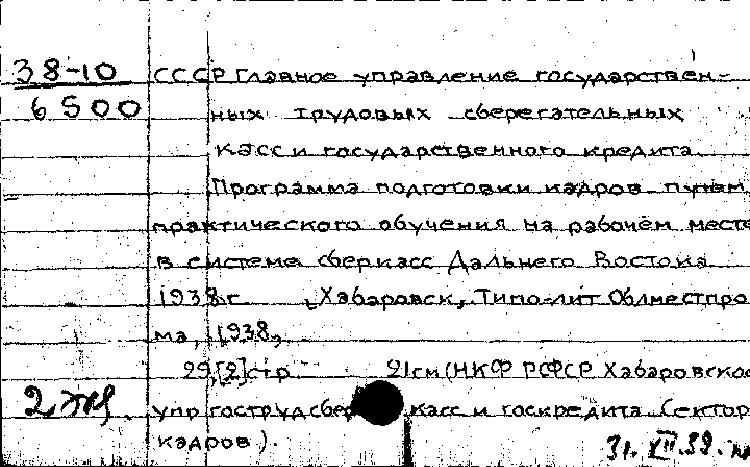 38-10 СССР Главное управление государствен-
6500 ных трудовых сберегательных
касс и государственного кредита
Программа подготовки кадров путем
практического обучения на рабочем месте
в системе сберкасс Дальнего Востока
1938 г. Хабаровск, Типо-лит Облместпро
ма, 1938,
29,[2] стр 21 см (НКФ РСФСР Хабаровское
2 упр гострудсбер касс и госкредита Сектор
кадров).
31.XII.39.